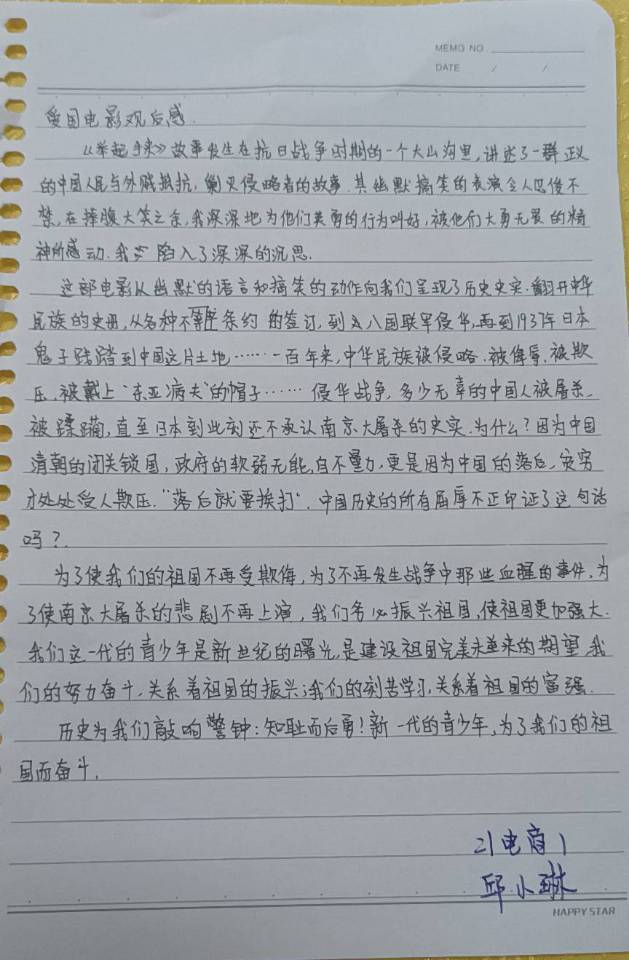 MEMO NO
DATE / /
爱国电影观后感.
《举起手来》故事发生在抗日战争时期的一个大山沟里,讲述了一群正义
的中国人民与外贼抵抗,剿灭侵略者的故事.其幽默搞笑的表演令人忍俊不
禁,在捧腹大笑之余,我深深地为他们英勇的行为叫好,被他们大勇无畏的精
神所感动.我 陷入了深深的沉思.
这部电影从幽默的语言和搞笑的动作向我们呈现了历史史实.翻开中华
民族的史册,从各种不等 条约的签订,到 八国联军侵华,再到1937年日本
鬼子践踏到中国这片土地……一百年来,中华民族被侵略.被侮辱.被欺
压.被戴上“东亚病夫”的帽子……侵华战争,多少无辜的中国人被屠杀.
被蹂躏,直至日本到此刻还不承认南京大屠杀的史实.为什么?因为中国
清朝的闭关锁国,政府的软弱无能,自不量力,更是因为中国的落后,贫穷
才处处受人欺压.“落后就要挨打”.中国历史的所有屈辱不正印证了这句话
吗?
为了使我们的祖国不再受欺侮,为了不再发生战争中那些血腥的事件,为
了使南京大屠杀的悲剧不再上演,我们务必振兴祖国,使祖国更加强大.
我们这一代的青少年是新世纪的曙光,是建设祖国完美未来的期望.我
们的努力奋斗,关系着祖国的振兴;我们的刻苦学习,关系着祖国的富强.
历史为我们敲响警钟:知耻而后勇!新一代的青少年,为了我们的祖
国而奋斗.
21电商1
邱小琳
HAPPY STAR